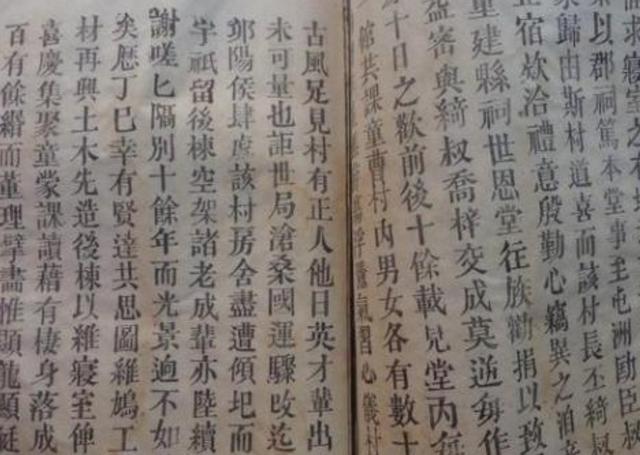 求寢室之
以郡祠篤本堂事至屯洲勛臣叔
家歸由斯村道喜而該村長丕綺叔
宿欤洽禮意殷勤心竊異之洎
重建縣祠世恩堂往族勸捐以致
益審與綺叔喬梓交成莫逆每作
十日之歡前後十餘載見堂內無
館共課童曹村內男女各有數十
氣習心儀村
古風足見村有正人他日英才輩出
未可量也詎世局滄桑國運驟改迄
陽侯肆虐該村房舍盡遭傾圯而
宇祇留後棟空架諸老成輩亦陸續
謝嗟匕隔別十餘年而光景迥不如
矣歷丁巳幸有賢達共思圖維鳩工
材再興土木先造後棟以維寢室俾
喜慶集聚童蒙課讀藉有棲身落成
百有餘緡而董理擘畫惟顯龍顯廷